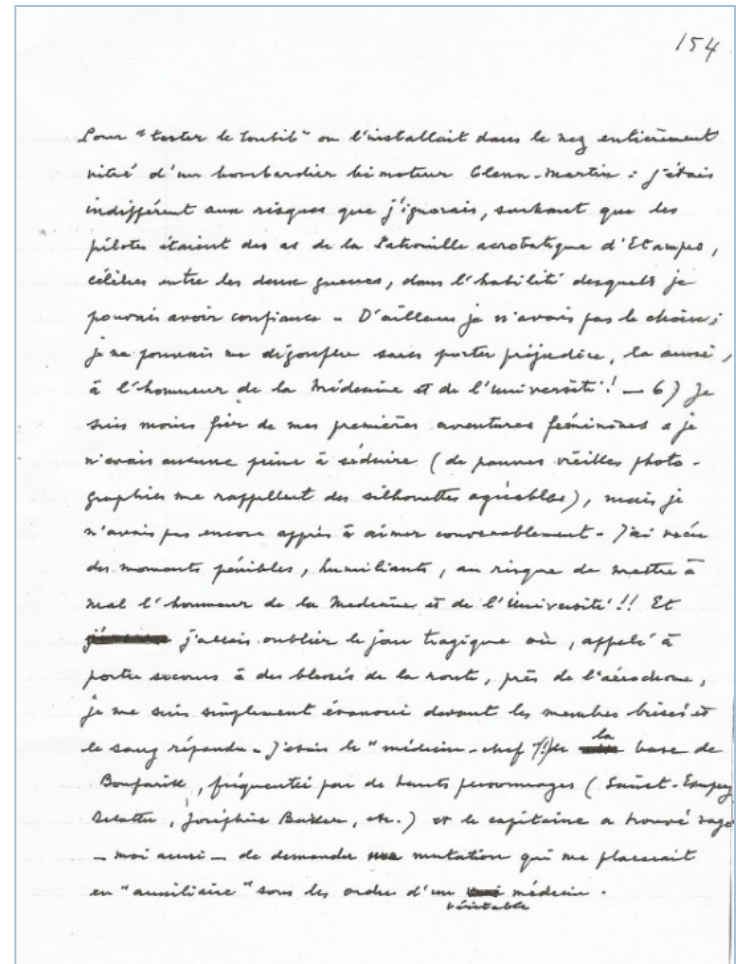 154
Pour "tester le toubib" on l'installait dans le nez entièrement
vitré d'un bombardier bimoteur Glenn-Martin : j'étais
indifférent aux risques que j'ignorais, sachant que les
pilotes étaient des as de la Patrouille acrobatique d'Etampes,
célèbres entre les deux guerres, dans l'habilité desquels je
pouvais avoir confiance - D'ailleurs je n'avais pas le choix ;
je ne pouvais me dégonfler sans porter préjudice, là aussi,
à l'honneur de la Médecine et de l'Université ! - 6) Je
suis moins fier de mes premières aventures féminines : je
n'avais aucune peine à séduire (de pauvres vieilles photo-
graphies me rappellent des silhouettes agréables), mais je
n'avais pas encore appris à aimer convenablement - J'ai vécu
des moments pénibles, humiliants, au risque de mettre à
mal l'honneur de la Médecine et de l'Université !! Et
j'allais oublier le jour tragique où, appelé à
porter secours à des blessés de la route, près de l'aérodrome,
je me suis simplement évanoui devant les membres brisés et
le sang répandu - J'étais le "médecin-chef" (!) de la base de
Boufarik, fréquentée par de hauts personnages (Saint-Exupéry
Delattre, Joséphine Baker, etc.) et le capitaine a trouvé sage
- moi aussi - de demander une mutation qui me placerait
en "auxiliaire" sous les ordres d'un véritable médecin.